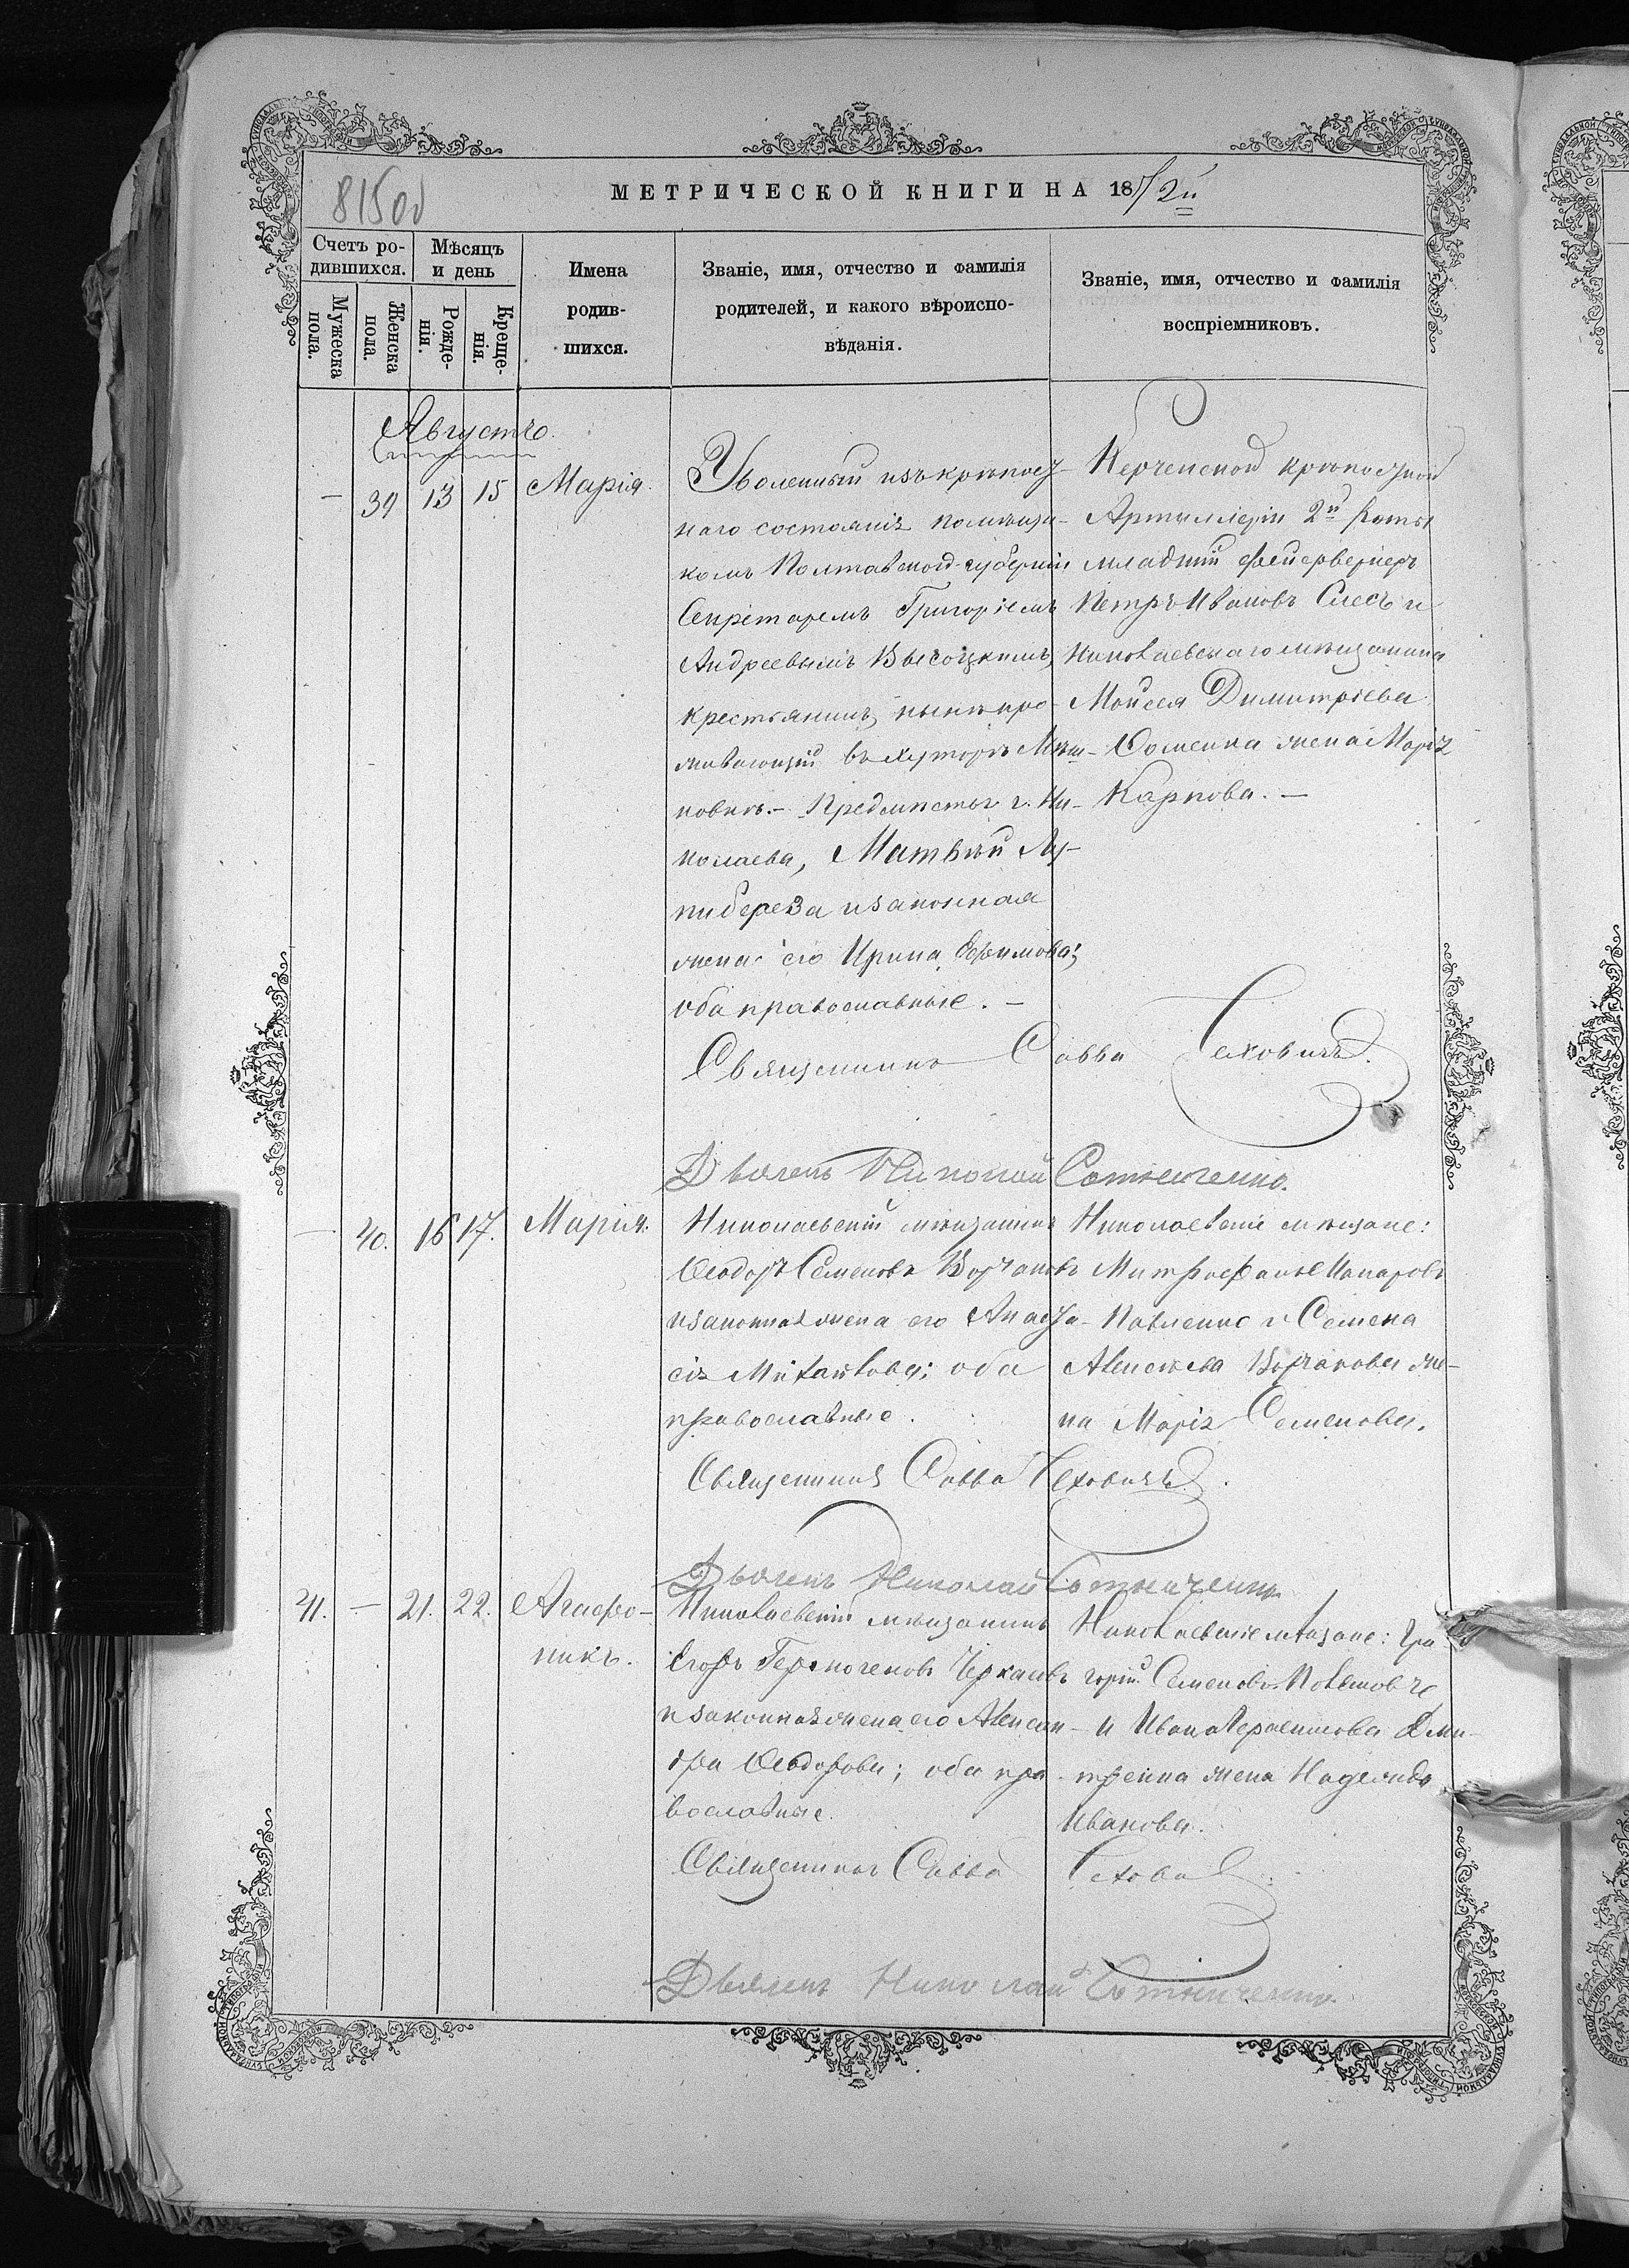 МЕТРИЧЕСКОЙ КНИГИ НА 1872й
Счетъ ро-
дившихся.
Мужеска
пола.
Женска
пола.
Мѣсяцъ
и день
Рожде-
нія.
Креще-
нія.
Имена
родив-
шихся.
Званіе, имя, отчество и фамилія
родителей, и какого вѣроиспо-
вѣданія.
Званіе, имя, отчество и фамилія
воспріемниковъ.
Августъ.
— 39 13 15 Марія.
Уволенный изъ крѣпост-
наго состоянія помѣщи-
комъ Полтавской губерніи
Секрітаремъ Григоріемъ
Андреевымъ Высоцкимъ,
крестьянинъ, нынѣ про-
живающій въ хуторѣ Мѣш-
ковкѣ.— Предмѣстья г. Ни-
колаева, Матвѣй Лу-
пибереза и законная
жена его Ирина Ефимова;
оба православные.—
Керченской крѣпостной
Артиллеріи 2й роты
младшій фейерверкеръ
Петръ Ивановъ Слесь и
Николаевскаго мѣщанина
Мойсея Димитріева
жена Марія
Карпова.—
Священникъ Савва
Дьячекъ Николай Сотниченко.
— 40. 16 17. Марія.
Николаевскій мѣщанинъ
Ѳеодоръ Семеновъ Корчановъ
и законная жена его Анаста-
сія Михайлова; оба
православные.
Николаевскіе мѣщане:
Митрофанъ Макаровъ
Павленко и Семена
Алексѣева Корчанова же-
на Марія Семенова.
Священникъ Савва
Дьячекъ Николай Сотниченко
41. — 21. 22. Агафо-
никъ.
Николаевскій мѣщанинъ
Егоръ Гермогеновъ Черкасовъ
и законная жена его Алексан-
дра Ѳеодорова; оба пра-
вославные.
Николаевскіе мѣщане: Гри-
горій Семеновъ
и Ивана Герасимова Дми-
тренка жена Надежда
Иванова.
Священникъ Савва
Дьячекъ Николай Сотниченко.